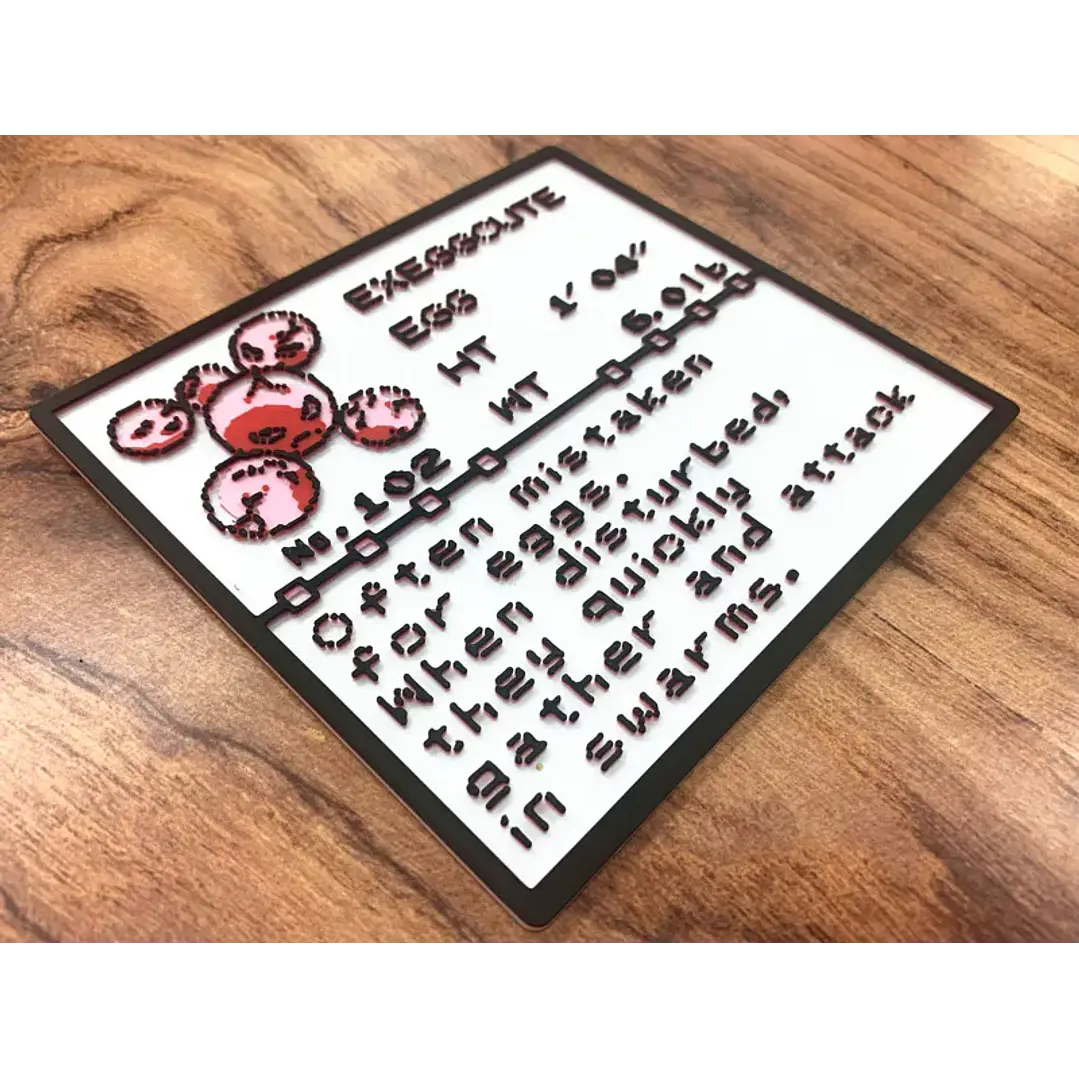 EXEGGCUTE
EGG
HT 1'04"
WT 6.0lb
No.102
Often mistaken
for eggs.
When disturbed,
they quickly
gather and attack
in swarms.